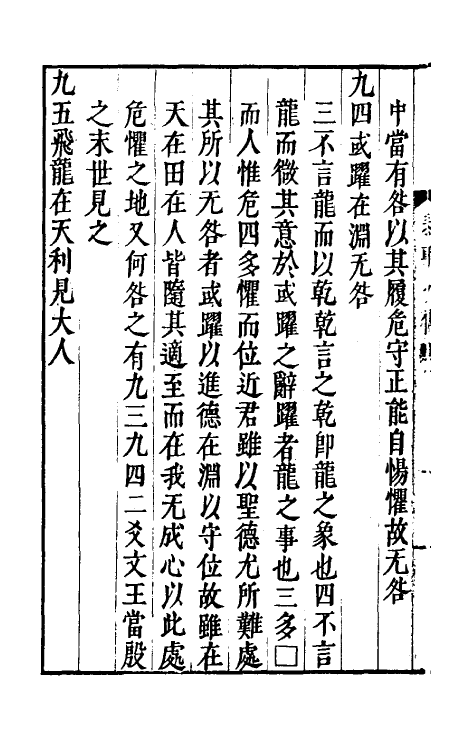 中當有咎以其履危守正能自惕懼故无咎
九四或躍在淵无咎
三不言龍而以乾乾言之乾即龍之象也四不言
龍而微其意於或躍之辭躍者龍之事也三多□
而人惟危四多懼而位近君雖以聖德尤所難處
其所以无咎者或躍以進德在淵以守位故雖在
天在田在人皆隨其適至而在我无成心以此處
危懼之地又何咎之有九三九四二爻文王當殷
之末世見之
九五飛龍在天利見大人